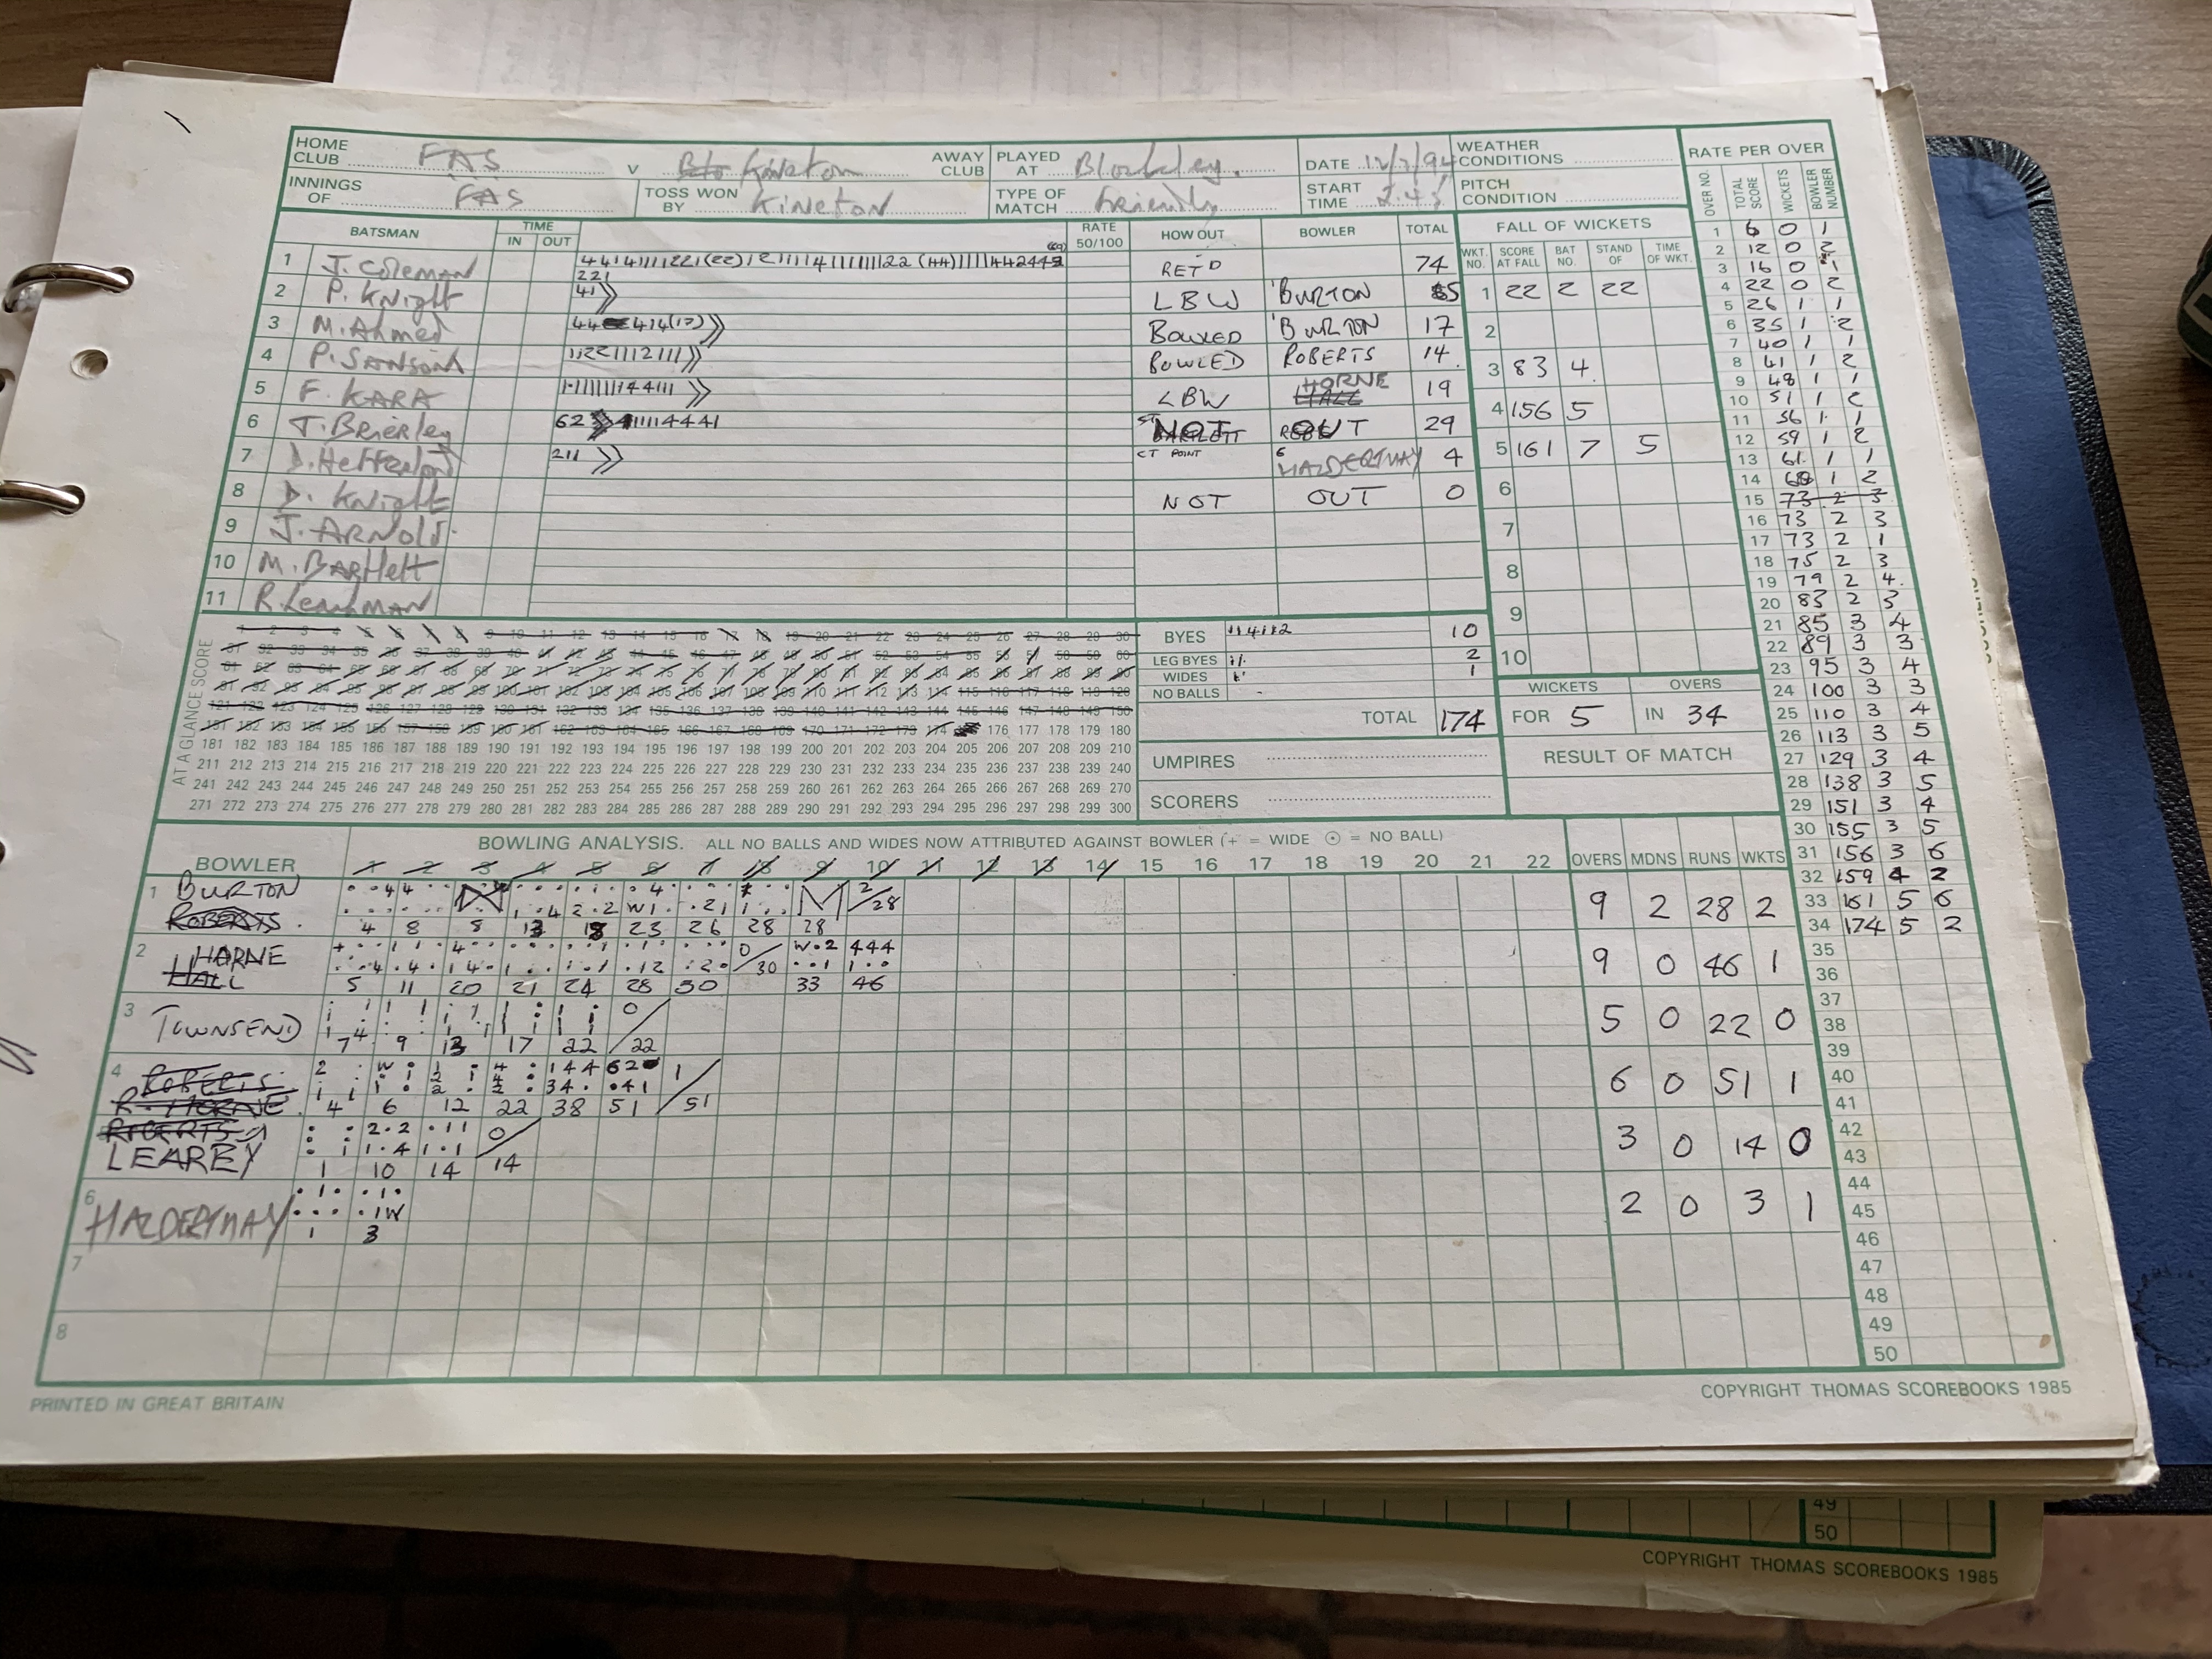 HOME CLUB FAS v Kineton AWAY CLUB PLAYED AT Blockley. DATE 12/7/94 WEATHER CONDITIONS RATE PER OVER
INNINGS OF FAS TOSS WON BY KINETON TYPE OF MATCH Friendly START TIME 2.45 PITCH CONDITION
BATSMAN TIME IN OUT RATE 50/100 HOW OUT BOWLER TOTAL FALL OF WICKETS
WKT. NO. SCORE AT FALL BAT NO. STAND OF TIME OF WKT.
OVER NO. TOTAL SCORE WICKETS BOWLER NUMBER
1 J. COLEMAN RET'D 74
221
2 P. Knight 41 LBW BURTON 5
3 M. Ahmed BOWLED BURTON 17
4 P. SANSOM 11221112111 BOWLED ROBERTS 14
5 F. KARA LBW HORNE 19
6 T. Brierley NOT OUT 29
7 211 CT POINT HALDERTHAY 4
8 D. Knight NOT OUT 0
9 J. ARNOLD
10 M. BARtlett
11
1 22 2 22
2
3 83 4
4 156 5
5 161 7 5
6
7
8
9
10
BYES 114112 10
LEG BYES 11 2
WIDES 1
NO BALLS -
TOTAL 174
WICKETS OVERS
FOR 5 IN 34
RESULT OF MATCH
UMPIRES
SCORERS
AT A GLANCE SCORE
1 2 3 4 5 6 7 8 9 10 11 12 13 14 15 16 17 18 19 20 21 22 23 24 25 26 27 28 29 30
31 32 33 34 35 36 37 38 39 40 41 42 43 44 45 46 47 48 49 50 51 52 53 54 55 56 57 58 59 60
61 62 63 64 65 66 67 68 69 70 71 72 73 74 75 76 77 78 79 80 81 82 83 84 85 86 87 88 89 90
91 92 93 94 95 96 97 98 99 100 101 102 103 104 105 106 107 108 109 110 111 112 113 114 115 116 117 118 119 120
121 122 123 124 125 126 127 128 129 130 131 132 133 134 135 136 137 138 139 140 141 142 143 144 145 146 147 148 149 150
151 152 153 154 155 156 157 158 159 160 161 162 163 164 165 166 167 168 169 170 171 172 173 174 176 177 178 179 180
181 182 183 184 185 186 187 188 189 190 191 192 193 194 195 196 197 198 199 200 201 202 203 204 205 206 207 208 209 210
211 212 213 214 215 216 217 218 219 220 221 222 223 224 225 226 227 228 229 230 231 232 233 234 235 236 237 238 239 240
241 242 243 244 245 246 247 248 249 250 251 252 253 254 255 256 257 258 259 260 261 262 263 264 265 266 267 268 269 270
271 272 273 274 275 276 277 278 279 280 281 282 283 284 285 286 287 288 289 290 291 292 293 294 295 296 297 298 299 300
1 6 0 1
2 12 0 2
3 16 0 1
4 22 0 2
5 26 1 1
6 35 1 2
7 40 1 1
8 41 1 2
9 48 1 1
10 51 1 2
11 56 1 1
12 59 1 2
13 61 1 1
14 68 1 2
15 73 2 3
16 73 2 3
17 73 2 1
18 75 2 3
19 79 2 4
20 83 2 3
21 85 3 4
22 89 3 3
23 95 3 4
24 100 3 3
25 110 3 4
26 113 3 5
27 129 3 4
28 138 3 5
29 151 3 4
30 155 3 5
31 156 3 6
32 159 4 2
33 161 5 6
34 174 5 2
35
36
37
38
39
40
41
42
43
44
45
46
47
48
49
50
BOWLING ANALYSIS. ALL NO BALLS AND WIDES NOW ATTRIBUTED AGAINST BOWLER (+ = WIDE ⊙ = NO BALL)
BOWLER 1 2 3 4 5 6 7 8 9 10 11 12 13 14 15 16 17 18 19 20 21 22 OVERS MDNS RUNS WKTS
1 BURTON 9 2 28 2
ROBERTS
4 8 8 13 18 23 26 28 28 2/28
2 HORNE 9 0 46 1
HALL
5 11 20 21 24 28 30 0/30 33 46
3 TOWNSEND 5 0 22 0
7 9 13 17 22 0/22
4 ROBERTS 6 0 51 1
R. HORNE
4 6 12 22 38 51 1/51
ROBERTS
LEAREY 3 0 14 0
1 10 14 0/14
6 HALDERTHAY 2 0 3 1
1 3
7
8
PRINTED IN GREAT BRITAIN
COPYRIGHT THOMAS SCOREBOOKS 1985
49
50
COPYRIGHT THOMAS SCOREBOOKS 1985